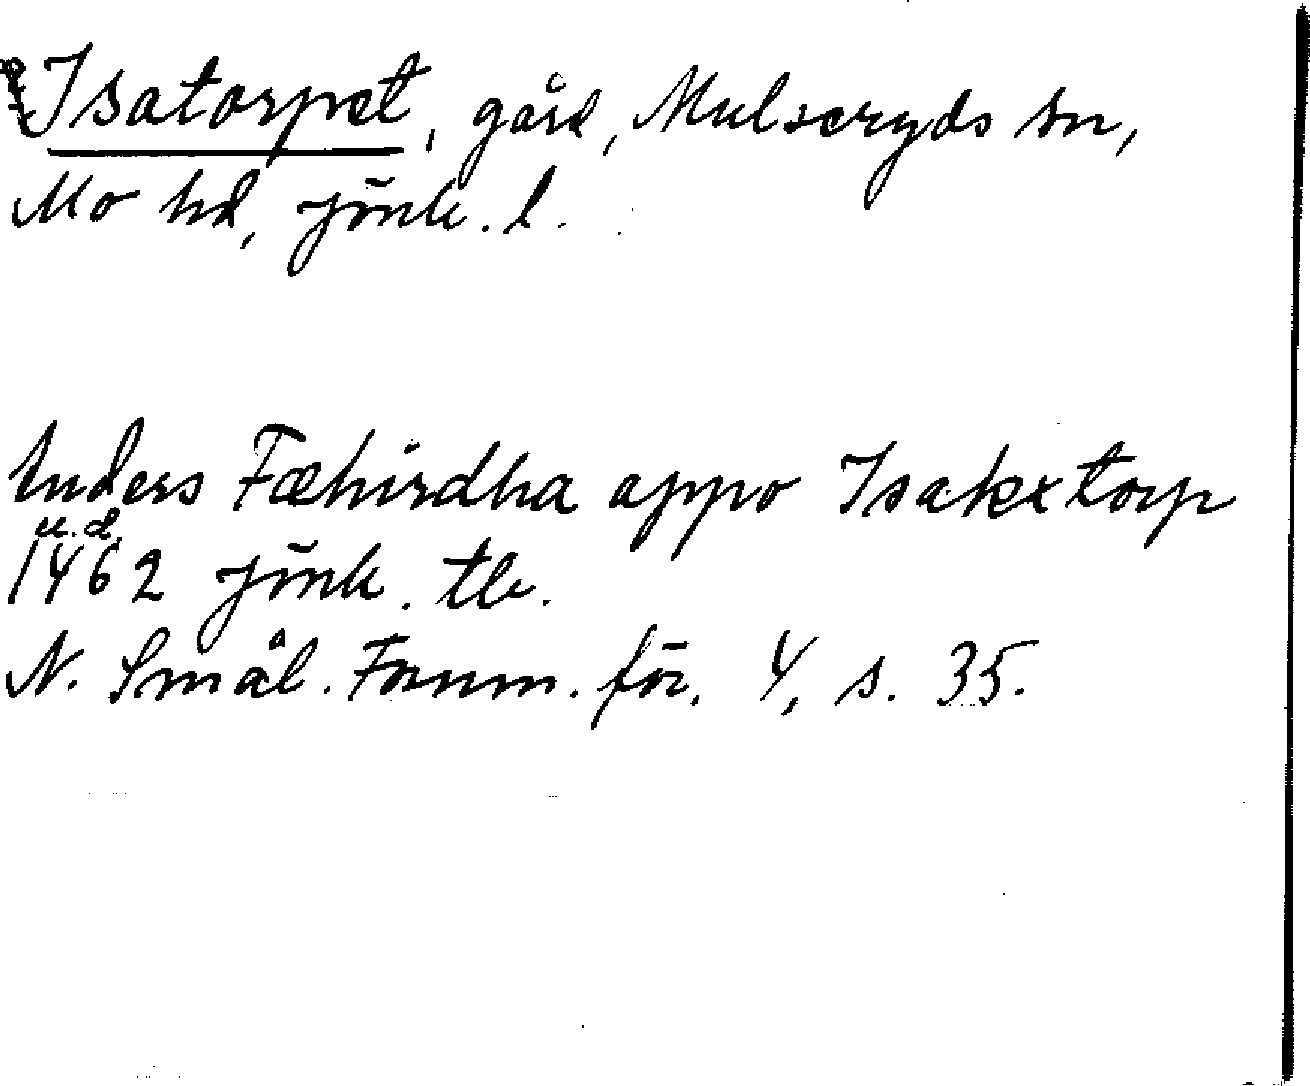 Isatorpet, gård, Mulseryds sn,
Mo hd, Jönk. l.
Anders Fæhirdha appo Isakxtorp
u.d.
1462 Jönk. tb.
N. Smål. Fornm. för. 4, s. 35.